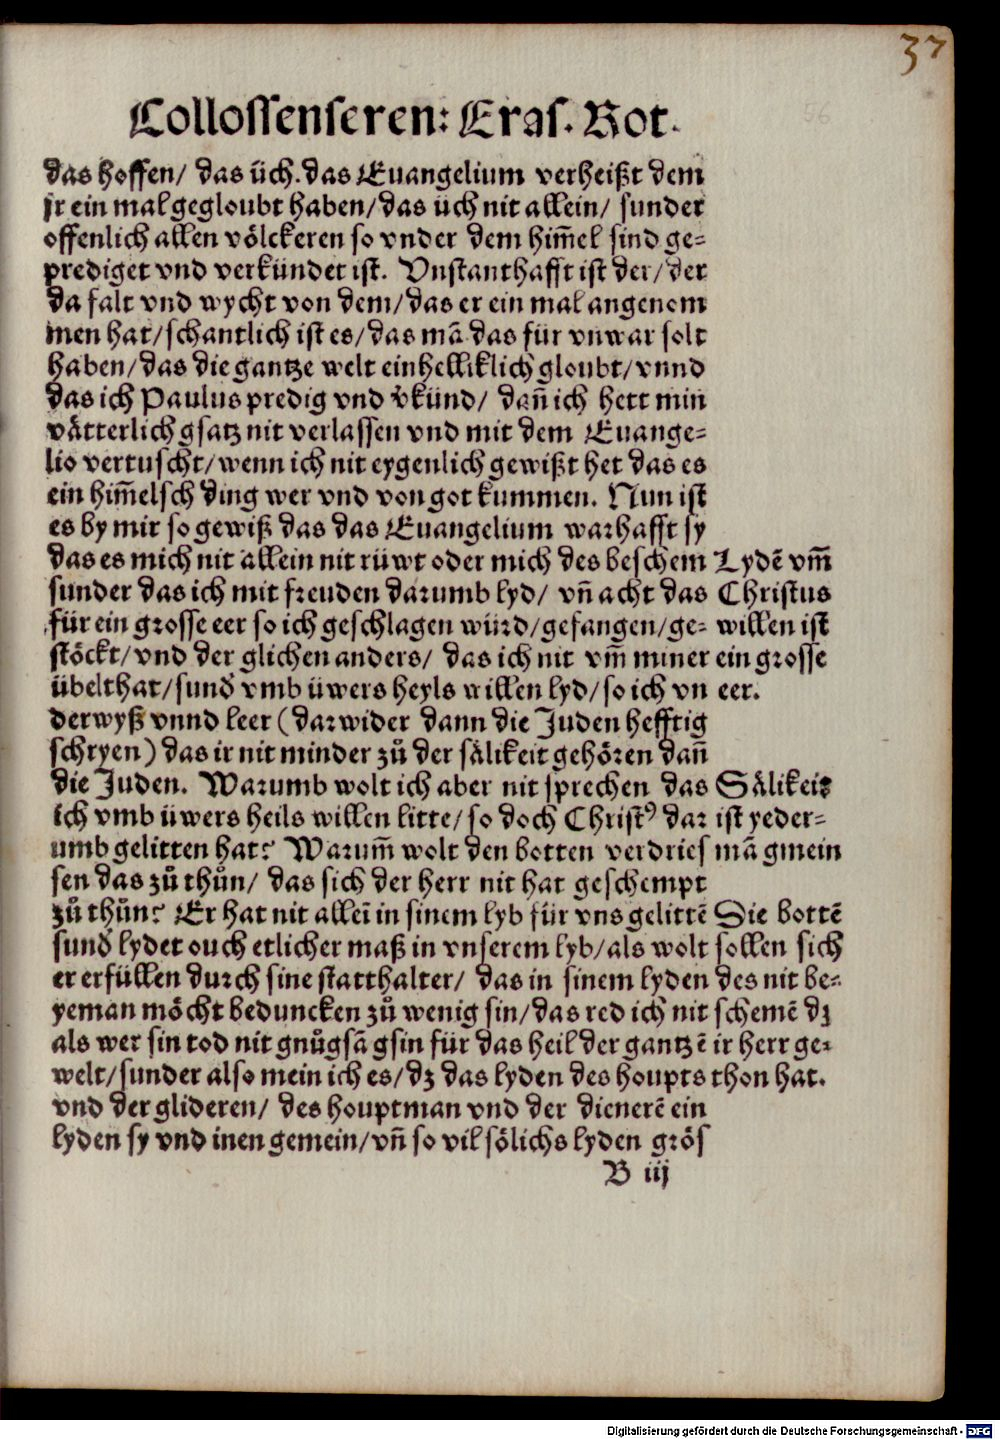 37
56
Collossenseren: Eras. Rot.
das hoffen/ das üch. das Euangelium verheißt dem
jr ein mal gegloubt haben/ das üch nit allein/ sunder
offenlich allen völckeren so vnder dem him̄el sind ge-
prediget vnd verkündet ist. Vnstanthafft ist der/ der
da falt vnd wycht von dem/ das er ein mal angenom
men hat/ schantlich ist es/ das mā das für vnwar solt
haben/ das die gantze welt einhelliklich gloubt/ vnnd
das ich Paulus predig vnd v̓künd/ dañ ich hett min
vätterlich gsatz nit verlassen vnd mit dem Euange-
lio vertuscht/ wenn ich nit eygenlich gewißt het das es
ein him̄elsch ding wer vnd von got kummen. Nun ist
es by mir so gewiß das das Euangelium warhafft sy
das es mich nit allein nit rüwt oder mich des beschem
sunder das ich mit freuden darumb lyd/ vñ acht das
für ein grosse eer so ich geschlagen würd/ gefangen/ ge-
stöckt/ vnd der glichen anders/ das ich nit vm̄ miner
übelthat/ sund̓ vmb üwers heyls willen lyd/ so ich vn
derwyß vnnd leer (darwider dann die Juden hefftig
schryen) das ir nit minder zů der sälikeit gehören dañ
die Juden. Warumb wolt ich aber nit sprechen das
ich vmb üwers heils willen litte/ so doch Christꝰ dar
umb gelitten hat? Warum̄ wolt den botten verdries
sen das zů thůn/ das sich der herr nit hat geschempt
zů thůn? Er hat nit alleī in sinem lyb für vns gelittē
sund̓ lydet ouch etlicher maß in vnserem lyb/ als wolt
er erfüllen durch sine statthalter/ das in sinem lyden
yeman möcht beduncken zů wenig sin/ das red ich nit
als wer sin tod nit gnůgsā gsin für das heil der gantzē
welt/ sunder also mein ich es/ dʒ das lyden des houpts
vnd der glideren/ des houptman vnd der dienerē ein
lyden sy vnd inen gemein/ vñ so vil sölichs lyden grös
B iij
Lydē vm̄
Christus
willen ist
ein grosse
eer.
Sälikeit
ist yeder-
mā gmein
Die bottē
sollen sich
des nit be-
schemē dʒ
ir herr ge-
thon hat.
Digitalisierung gefördert durch die Deutsche Forschungsgemeinschaft - DFG